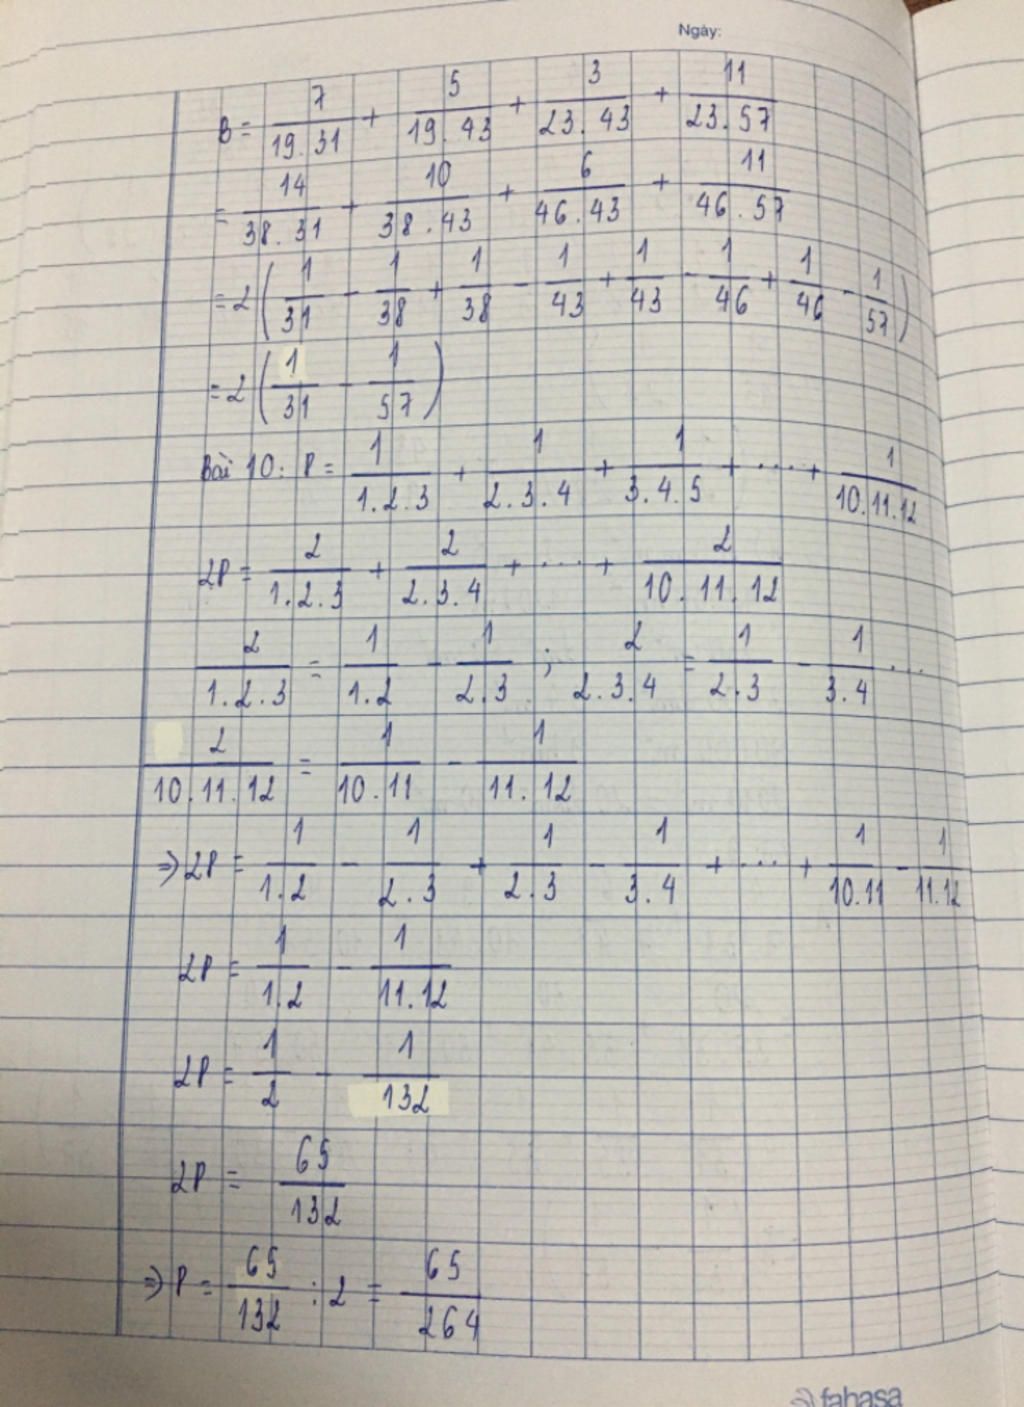 Ngày:
B = 7/19.31 + 5/19.43 + 3/23.43 + 11/23.57
= 14/38.31 + 10/38.43 + 6/46.43 + 11/46.57
= 2 ( 1/31 - 1/38 + 1/38 - 1/43 + 1/43 - 1/46 + 1/46 - 1/57 )
= 2 ( 1/31 - 1/57 )
Bài 10: P = 1/1.2.3 + 1/2.3.4 + 1/3.4.5 + ... + 1/10.11.12
2P = 2/1.2.3 + 2/2.3.4 + ... + 2/10.11.12
2/1.2.3 = 1/1.2 - 1/2.3 ; 2/2.3.4 = 1/2.3 - 1/3.4 ...
2/10.11.12 = 1/10.11 - 1/11.12
=> 2P = 1/1.2 - 1/2.3 + 1/2.3 - 1/3.4 + ... + 1/10.11 - 1/11.12
2P = 1/1.2 - 1/11.12
2P = 1/2 - 1/132
2P = 65/132
=> P = 65/132 : 2 = 65/264
fahasa